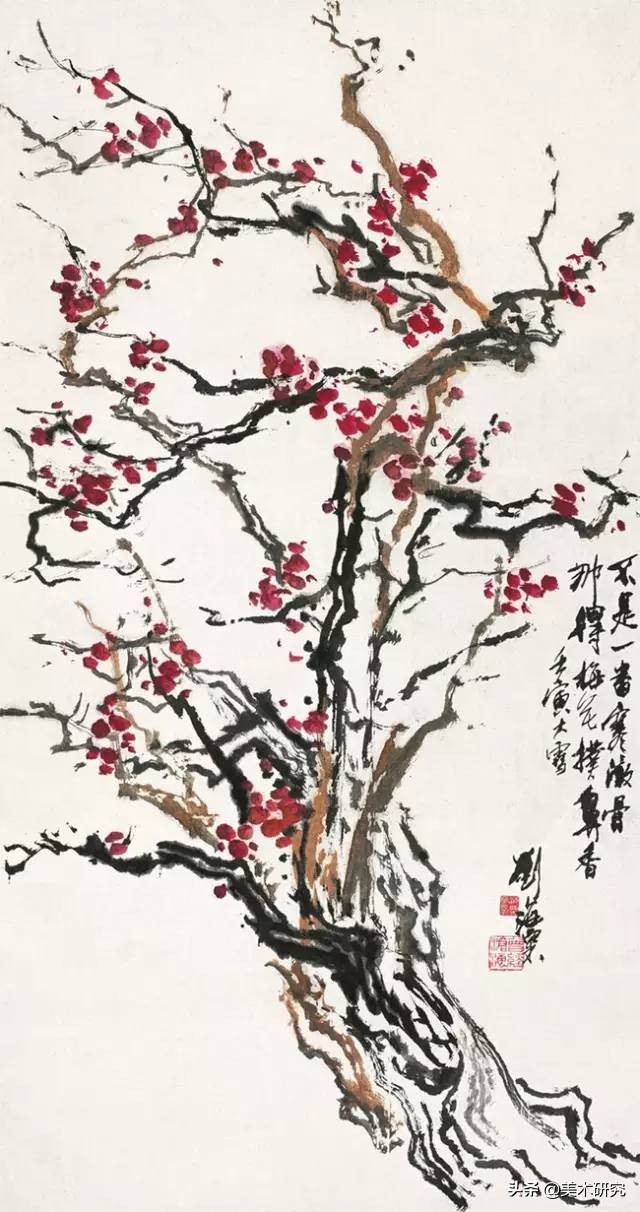 不是一番寒澈骨
那得梅花撲鼻香
壬寅大雪
劉海粟
头条 @美术研究